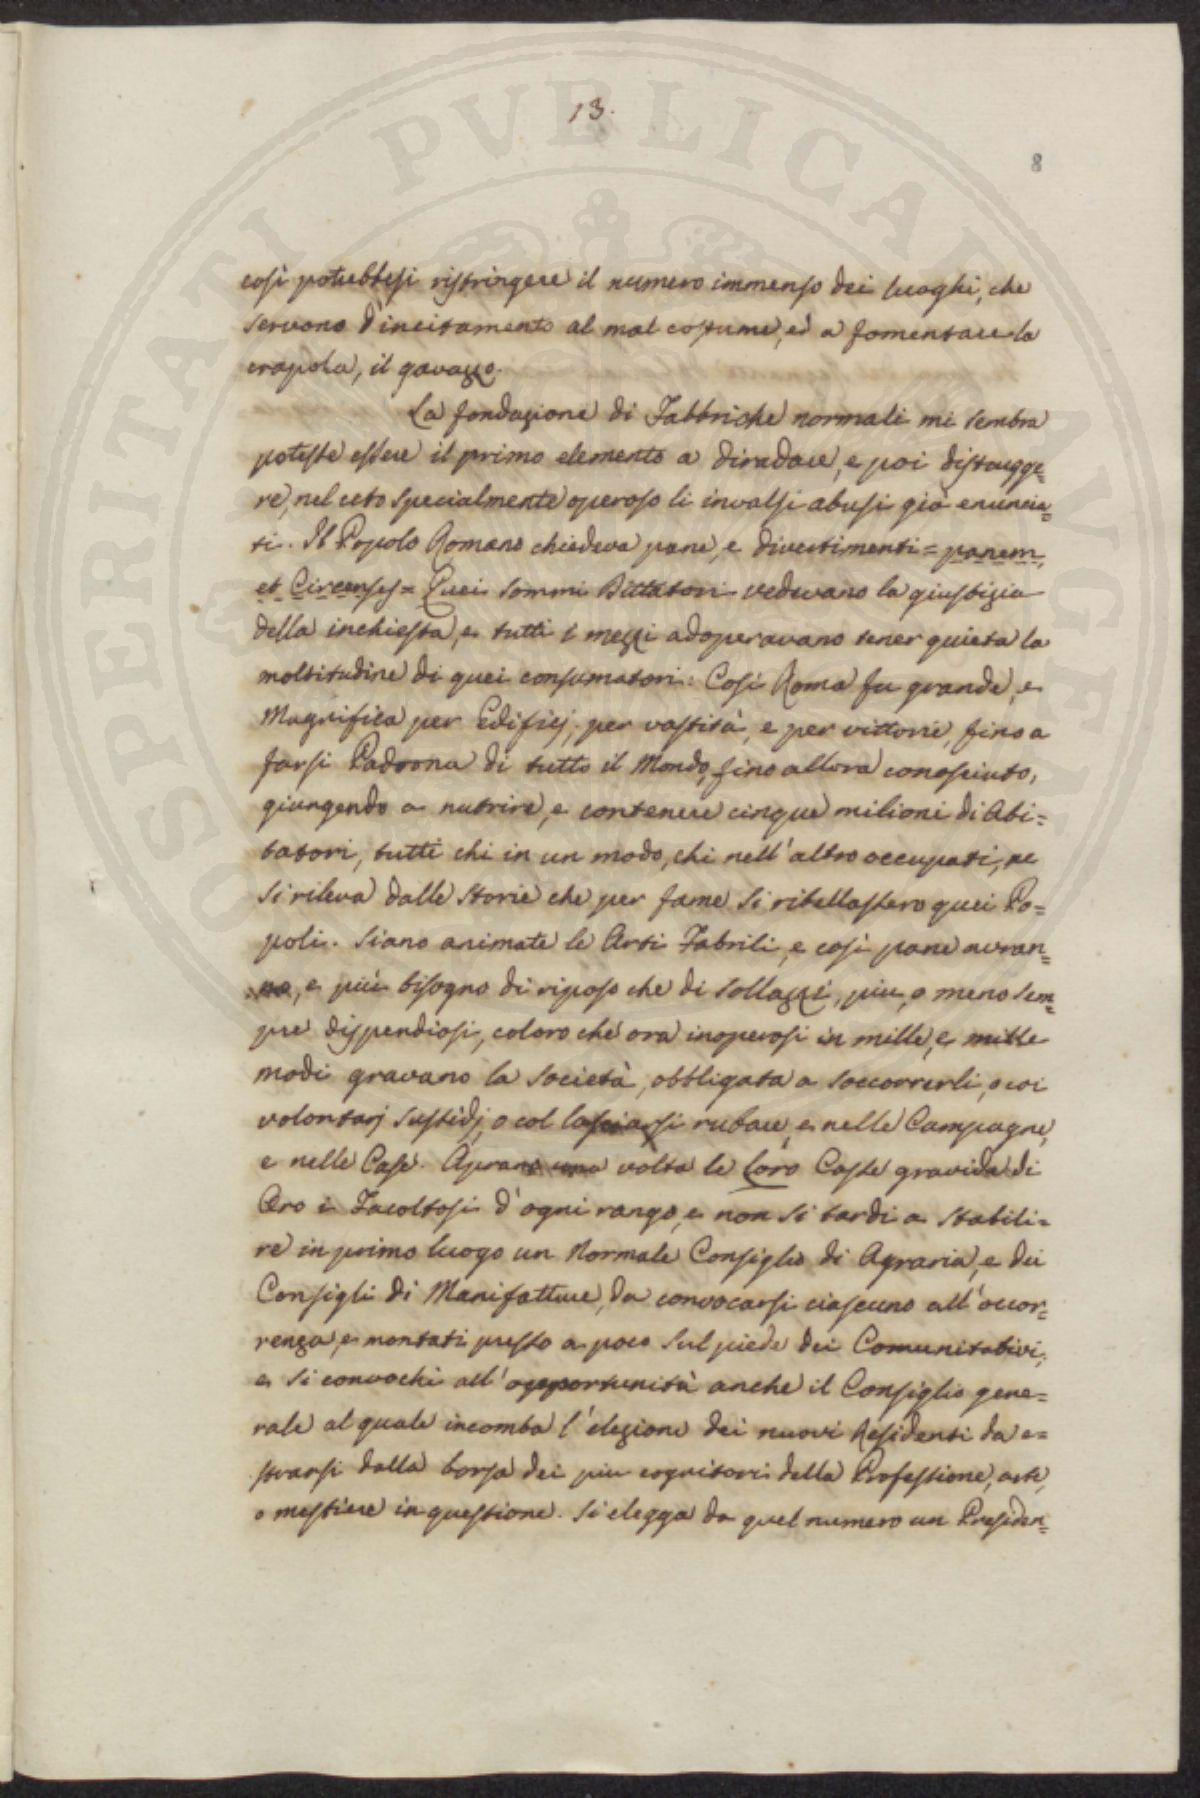 13.
8
così potrebbesi ristringere il numero immenso dei luoghi, che
servono d'incitamento al mal costume, ed a fomentare la
crapola, il gavazzo.
La fondazione di Fabbriche normali mi sembra
potesse essere il primo elemento a diradare, e poi distrugge=
re, nel ceto specialmente operoso li invalsi abusi già enuncia=
ti. Il Popolo Romano chiedeva pane, e divertimenti = panem,
et Circenses = Quei sommi Dittatori vedevano la giustizia
della inchiesta, e tutti i mezzi adoperavano tener quieta la
moltitudine di quei consumatori: Così Roma fu grande, e
Magnifica per Edifizj, per vastità, e per vittorie, fino a
farsi Padrona di tutto il Mondo, fino allora conosciuto,
giungendo a nutrire, e contenere cinque milioni di Abi=
tatori, tutti chi in un modo, chi nell'altro occupati, ne
si rileva dalle Storie che per fame si ribellassero quei Po=
poli. Siano animate le Arti Fabrili, e così pane avran=
no, e più bisogno di riposo che di sollazzi, più, o meno sem=
pre dispendiosi, coloro che ora inoperosi in mille, e mille
modi gravano la Società, obbligata a soccorrerli, o coi
volontarj sussidj, o col lasciarsi rubare, e nelle Campagne,
e nelle Case. Aprano una volta le loro Casse gravide di
Oro i Facoltosi d'ogni rango, e non si tardi a stabili=
re in primo luogo un Normale Consiglio di Agraria, e dei
Consigli di Manifatture, da convocarsi ciascuno all'occor=
renza, e montati presso a poco sul piede dei Comunitativi,
e si convochi all'opportunità anche il Consiglio gene=
rale al quale incomba l'elezione dei nuovi Residenti da e=
strarsi dalla borsa dei più cognitori della Professione, arte,
o mestiere in questione. Si elegga da quel numero un Presiden=
SPERITATI PVBLICAE AVGE